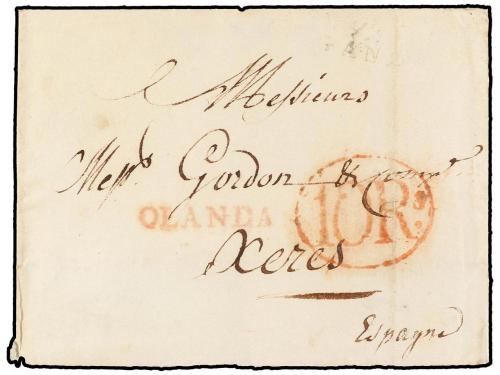 Messieurs
Mess.rs Gordon & Comp.e
OLANDA 10Rs.
Xeres
Espagne